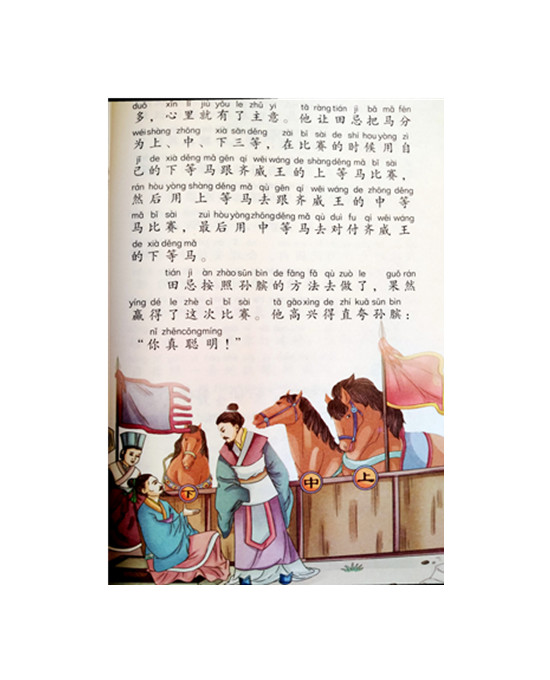 duō xīn lǐ jiù yǒu le zhǔ yi tā ràng tián jì bǎ mǎ fēn
多，心里就有了主意。他让田忌把马分
wéi shàng zhōng xià sān děng zài bǐ sài de shí hou yòng zì
为上、中、下三等，在比赛的时候用自
jǐ de xià děng mǎ gēn qí wēi wáng de shàng děng mǎ bǐ sài
己的下等马跟齐威王的上等马比赛，
rán hòu yòng shàng děng mǎ qù gēn qí wēi wáng de zhōng děng
然后用上等马去跟齐威王的中等
mǎ bǐ sài zuì hòu yòng zhōng děng mǎ qù duì fu qí wēi wáng
马比赛，最后用中等马去对付齐威王
de xià děng mǎ
的下等马。
tián jì àn zhào sūn bìn de fāng fǎ qù zuò le guǒ rán
田忌按照孙膑的方法去做了，果然
yíng dé le zhè cì bǐ sài tā gāo xìng de zhí kuā sūn bìn
赢得了这次比赛。他高兴得直夸孙膑：
nǐ zhēn cōng míng
“你真聪明！”
下 中 上